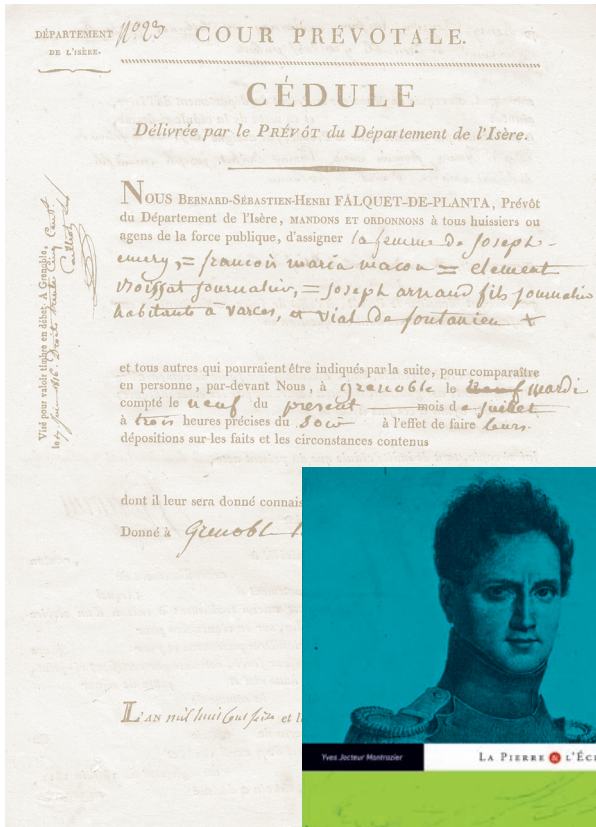 DÉPARTEMENT
DE L'ISÈRE.
N.º 23
COUR PRÉVOTALE.
CÉDULE
Délivrée par le PRÉVÔT du Département de l'Isère.
NOUS BERNARD-SÉBASTIEN-HENRI FALQUET-DE-PLANTA, Prévôt
du Département de l'Isère, MANDONS ET ORDONNONS à tous huissiers ou
agens de la force publique, d'assigner la femme de joseph
emery, = francois maria macon = element
vroissat journalier, = joseph arnaud fils journalier
habitants à varces, et vial de fontanieu
et tous autres qui pourraient être indiqués par la suite, pour comparaître
en personne, par-devant Nous, à grenoble le neuf mardi
compté le neuf du present mois de juillet
à trois heures précises du soir à l'effet de faire leurs
dépositions sur les faits et les circonstances contenus
dont il leur sera donné connais
Donné à Grenoble
L'AN mil huit cent seize et l
Visé pour valoir timbre en débet. A Grenoble,
Yves Jocteur Montrozier
LA PIERRE & L'ÉC